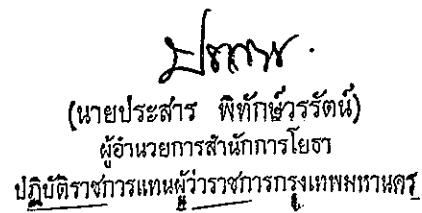 (นายประสาร พิทักษ์วรรัตน์)
ผู้อำนวยการสำนักการโยธา
ปฏิบัติราชการแทนผู้ว่าราชการกรุงเทพมหานคร